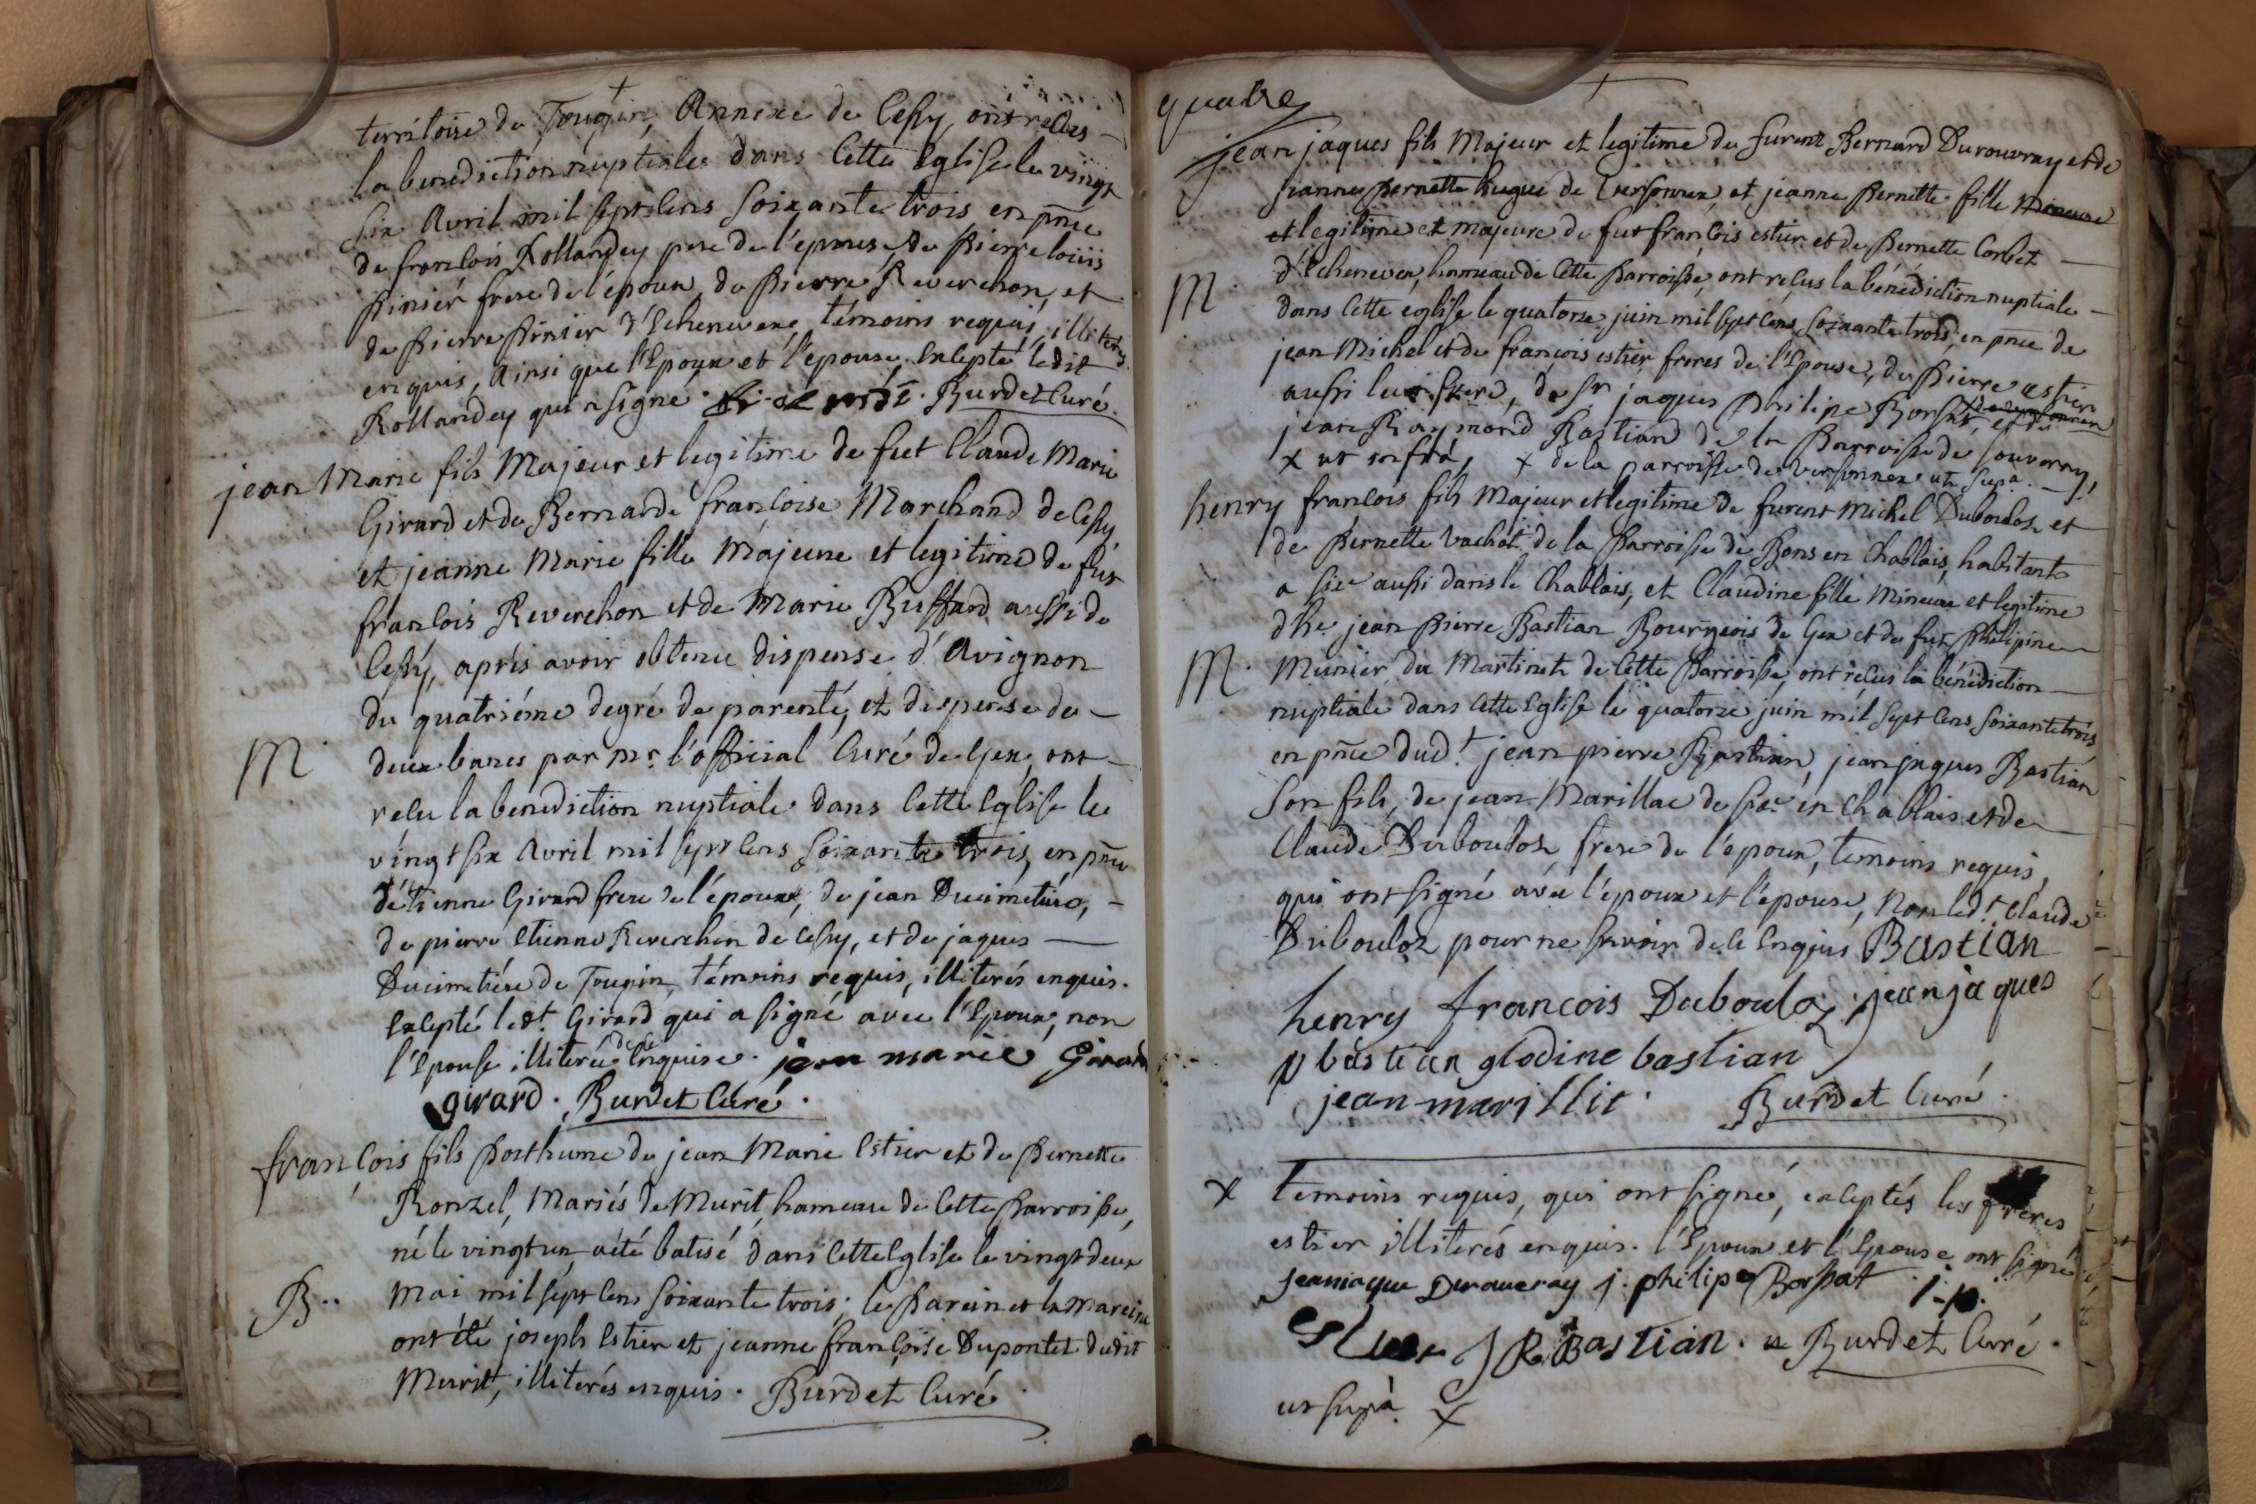 territoire de Tougin, Annexe de Cessy, ont reçus
la benediction nuptiale dans Cette Eglise le vingt
six Avril mil sept cens soixante trois en pnce
de françois Rollandey pere de l'epouse, de Pierre louis
Pinier frere de l'époux, de Pierre Reverchon, et
de Pierre Pinier d'Echenevex, témoins requis, illiterés
enquis, Ainsi que l'Epoux et l'epouse, Excepté ledit
Rollandey qui a signé. Burdet Curé.
jean Marie fils Majeur et legitime de fut Claude Marie
Girard et de Bernarde françoise Marchand de Cessy
et jeanne Marie fille Majeure et legitime de fut
françois Reverchon et de Marie Buffard aussi de
Cessy, aprés avoir obtenu dispense d'Avignon
du quatriéme degré de parenté, et dispense de
M. deux bancs par mr. l'official Curé de Gex, ont
reçu la benediction nuptiale dans Cette Eglise le
vingt six Avril mil sept cens soixante trois, en pnce
d'étienne Girard frere de l'époux, de jean Ducimetiére,
de pierre Etienne Reverchon de Cessy, et de jaques
Ducimetiére de Tougin, témoins requis, illiterés enquis.
Excepté ledt. Girard qui a signé avec l'Epoux, non
l'Epouse illiterée de ce Enquise. jean marie Girard
girard. Burdet Curé.
françois fils Posthume de jean Marie Estier et de Pernette
Ronzel, Mariés de Murit, hameau de Cette Parroisse,
né le vingt un a été batisé dans Cette Eglise le vingt deux
B. Mai mil sept cens soixante trois; le Parein et la Mareine
ont été joseph Estier et jeanne françoise Dupontet dudit
Murit, illiterés enquis. Burdet Curé.
quatre
jean jaques fils Majeur et legitime de furent Bernard Durouvray et de
jeanne Pernette hugue de Versonnex, et jeanne Pernette fille Mineure
et legitime et majeure de fut françois estier et de Pernette Corbet
d'Echenevex, hameau de Cette Parroisse, ont reçus la bénédiction nuptiale
M. dans Cette eglise le quatorze juin mil sept cens soixante trois, en pnce de
jean Michel et de françois estier freres de l'Epouse, de Pierre estier
aussi frere, de sr jaques Philipe Borsat, et de
jean Raymond Bastian de la Parroisse de Sauverny,
x ut infrà, x de la parroisse de versonnex ut supà.
henry françois fils Majeur et legitime de furent Michel Dubouloz et
de Pernette Vachat, de la Parroisse de Bons en Chablais, habitant
a Siex aussi dans le Chablais, et Claudine fille Mineure et legitime
d'he. jean Pierre Bastian Bourgeois de Gex et de fut Philipine
M. Munier du Martinet de Cette Parroisse, ont reçus la bénédiction
nuptiale dans Cette Eglise le quatorze juin mil sept cens soixante trois
en pnce dudt. jean pierre Bastian, jean jaques Bastian
son fils, de jean Marillac de Siex en Chablais et de
Claude Dubouloz frere de l'époux, temoins requis,
qui ont signé avec l'époux et l'épouse, Non ledt. Claude
Dubouloz pour ne savoir de ce Enquis Bastian
henry francois Dubouloz jean jaques
bastian glodine bastian
jean marillit. Burdet Curé.
x temoins requis, qui ont signé, exceptés les freres
estier illiterés enquis. l'Epoux et l'Epouse ont signé
Jeanjaque Durouveray j. philipe Borsat j. p.
J R Bastian. Burdet Curé.
ut supà. x